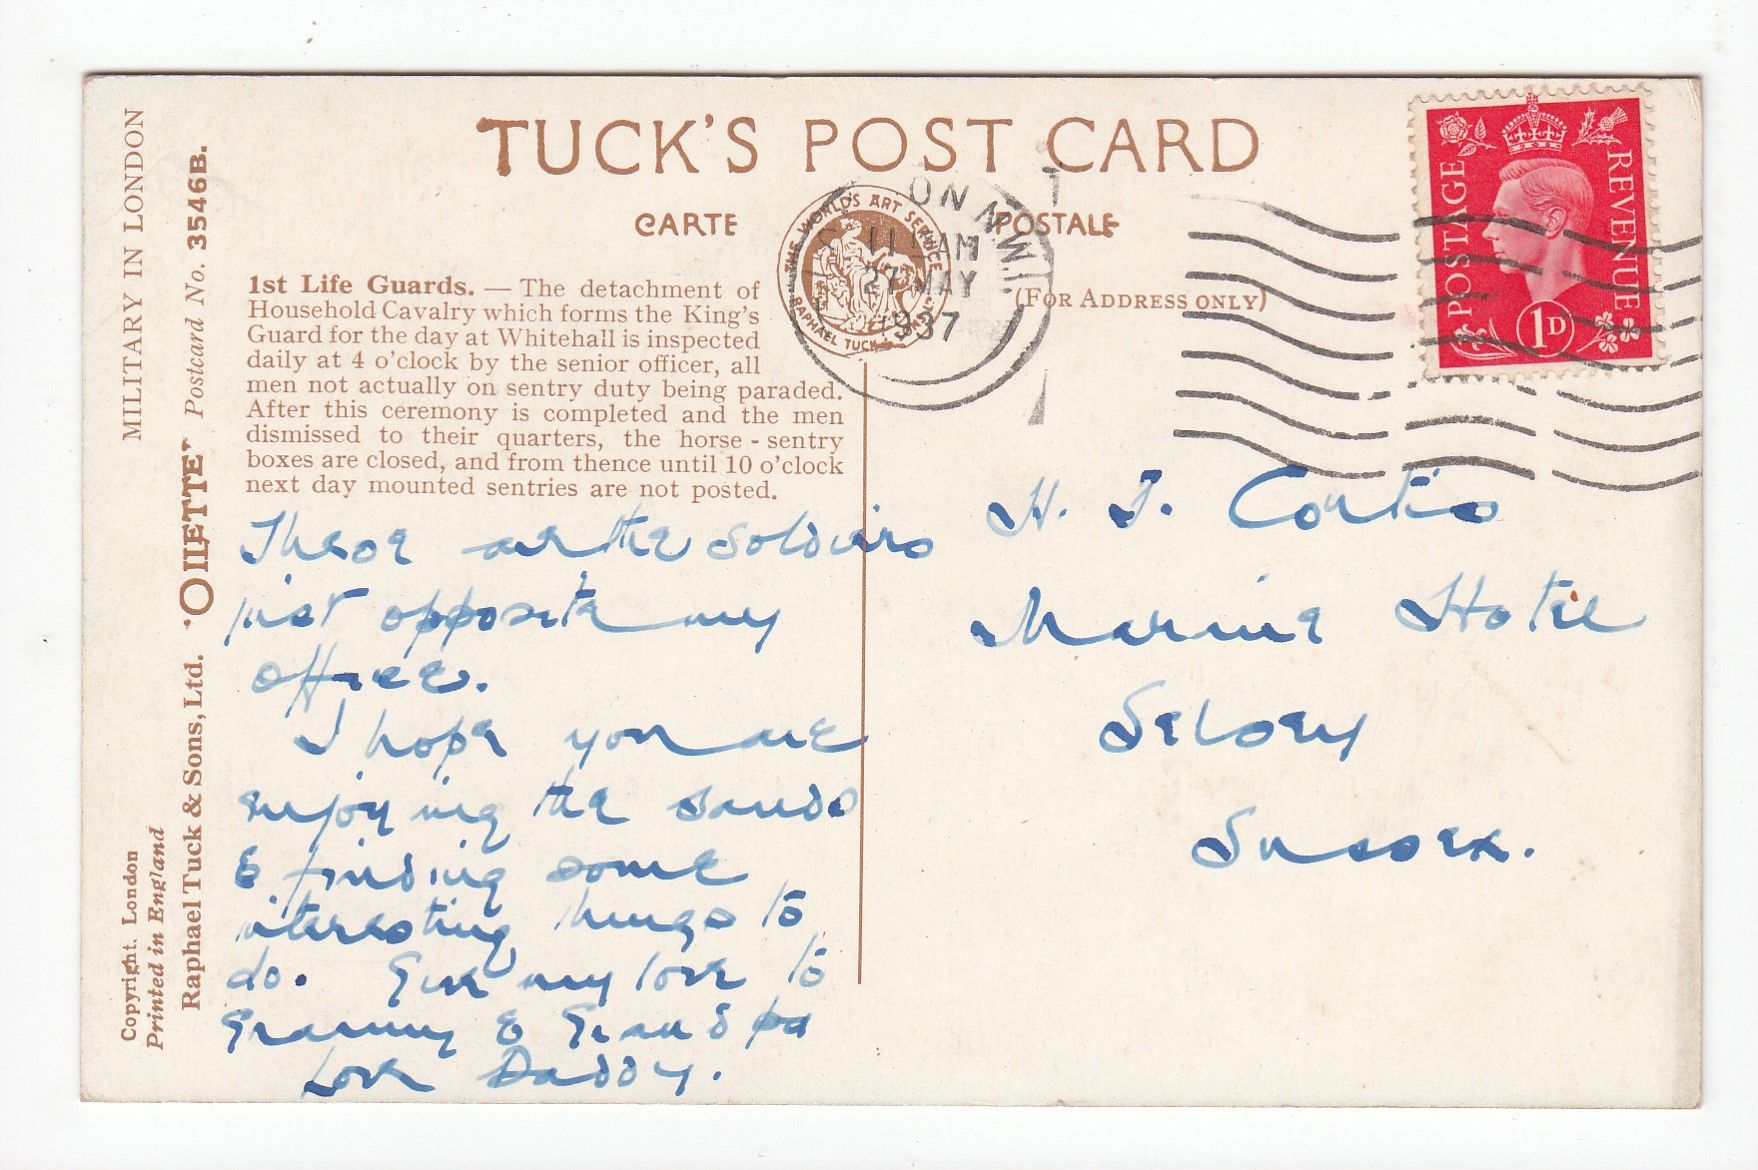 TUCK'S POST CARD
CARTE POSTALE
(FOR ADDRESS ONLY)
MILITARY IN LONDON
"OILETTE" Postcard No. 3546B.
Raphael Tuck & Sons, Ltd.
Copyright. London
Printed in England
1st Life Guards. — The detachment of
Household Cavalry which forms the King's
Guard for the day at Whitehall is inspected
daily at 4 o'clock by the senior officer, all
men not actually on sentry duty being paraded.
After this ceremony is completed and the men
dismissed to their quarters, the horse-sentry
boxes are closed, and from thence until 10 o'clock
next day mounted sentries are not posted.
THE WORLD'S ART SERVICE
RAPHAEL TUCK & SONS
ON N.W.1
11 AM
27 MAY
1937
POSTAGE REVENUE
1D
These are the soldiers
just opposite my
office.
I hope you are
enjoying the sands
& finding some
interesting things to
do. Give my love to
Granny & Grandpa
Love Daddy.
H. J.
Marine Hotel
Selsey
Sussex.